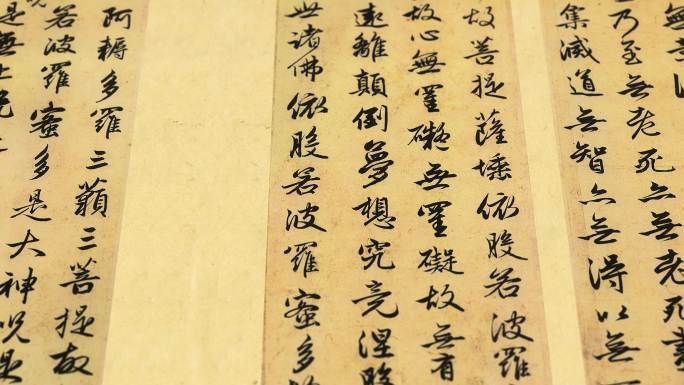 無
乃至無老死亦無老死盡
集滅道無智亦無得以無
故菩提薩埵依般若波羅
故心無罣礙無罣礙故無有
遠離顛倒夢想究竟涅般
世諸佛依般若波羅蜜多
阿耨多羅三藐三菩提故
般若波羅蜜多是大神咒是
是無上咒